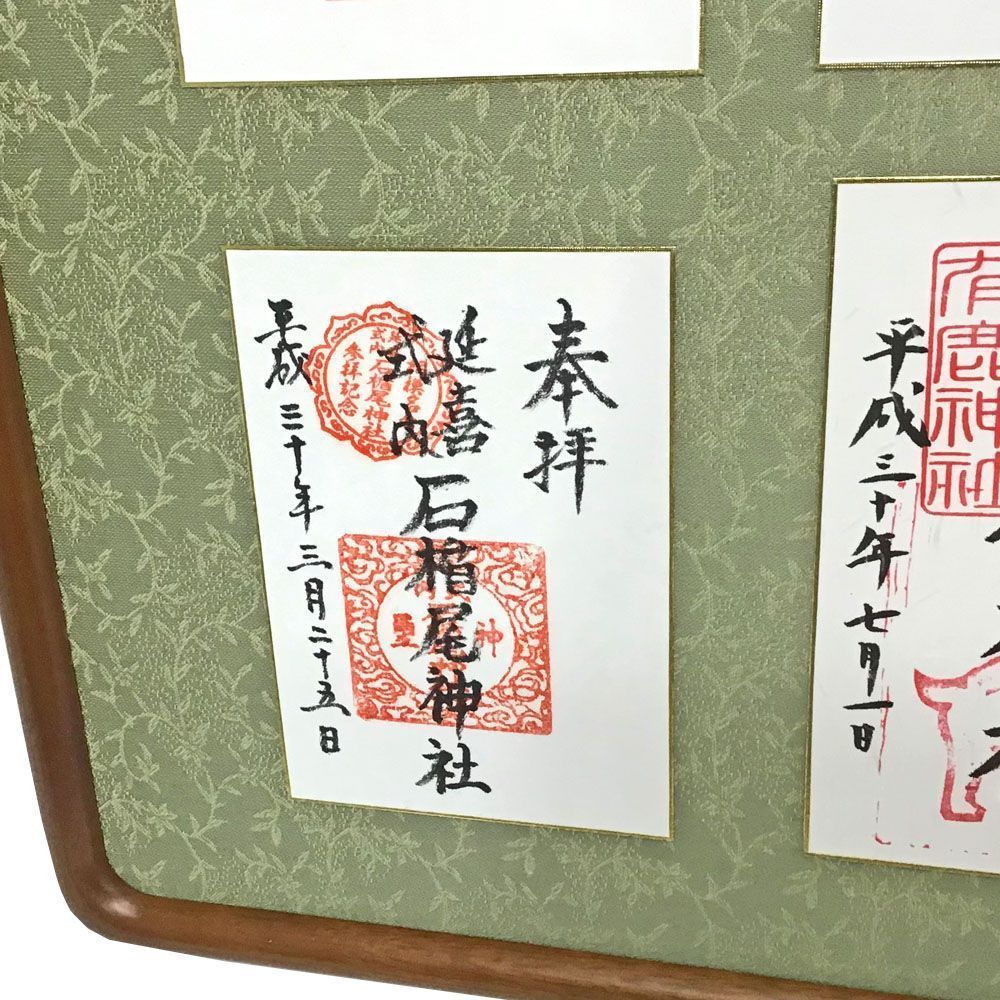 奉拝
延喜
式内
石楯尾神社
平成三十年三月二十五日
参拝記念
神璽
有鹿神社
平成三十年七月一日